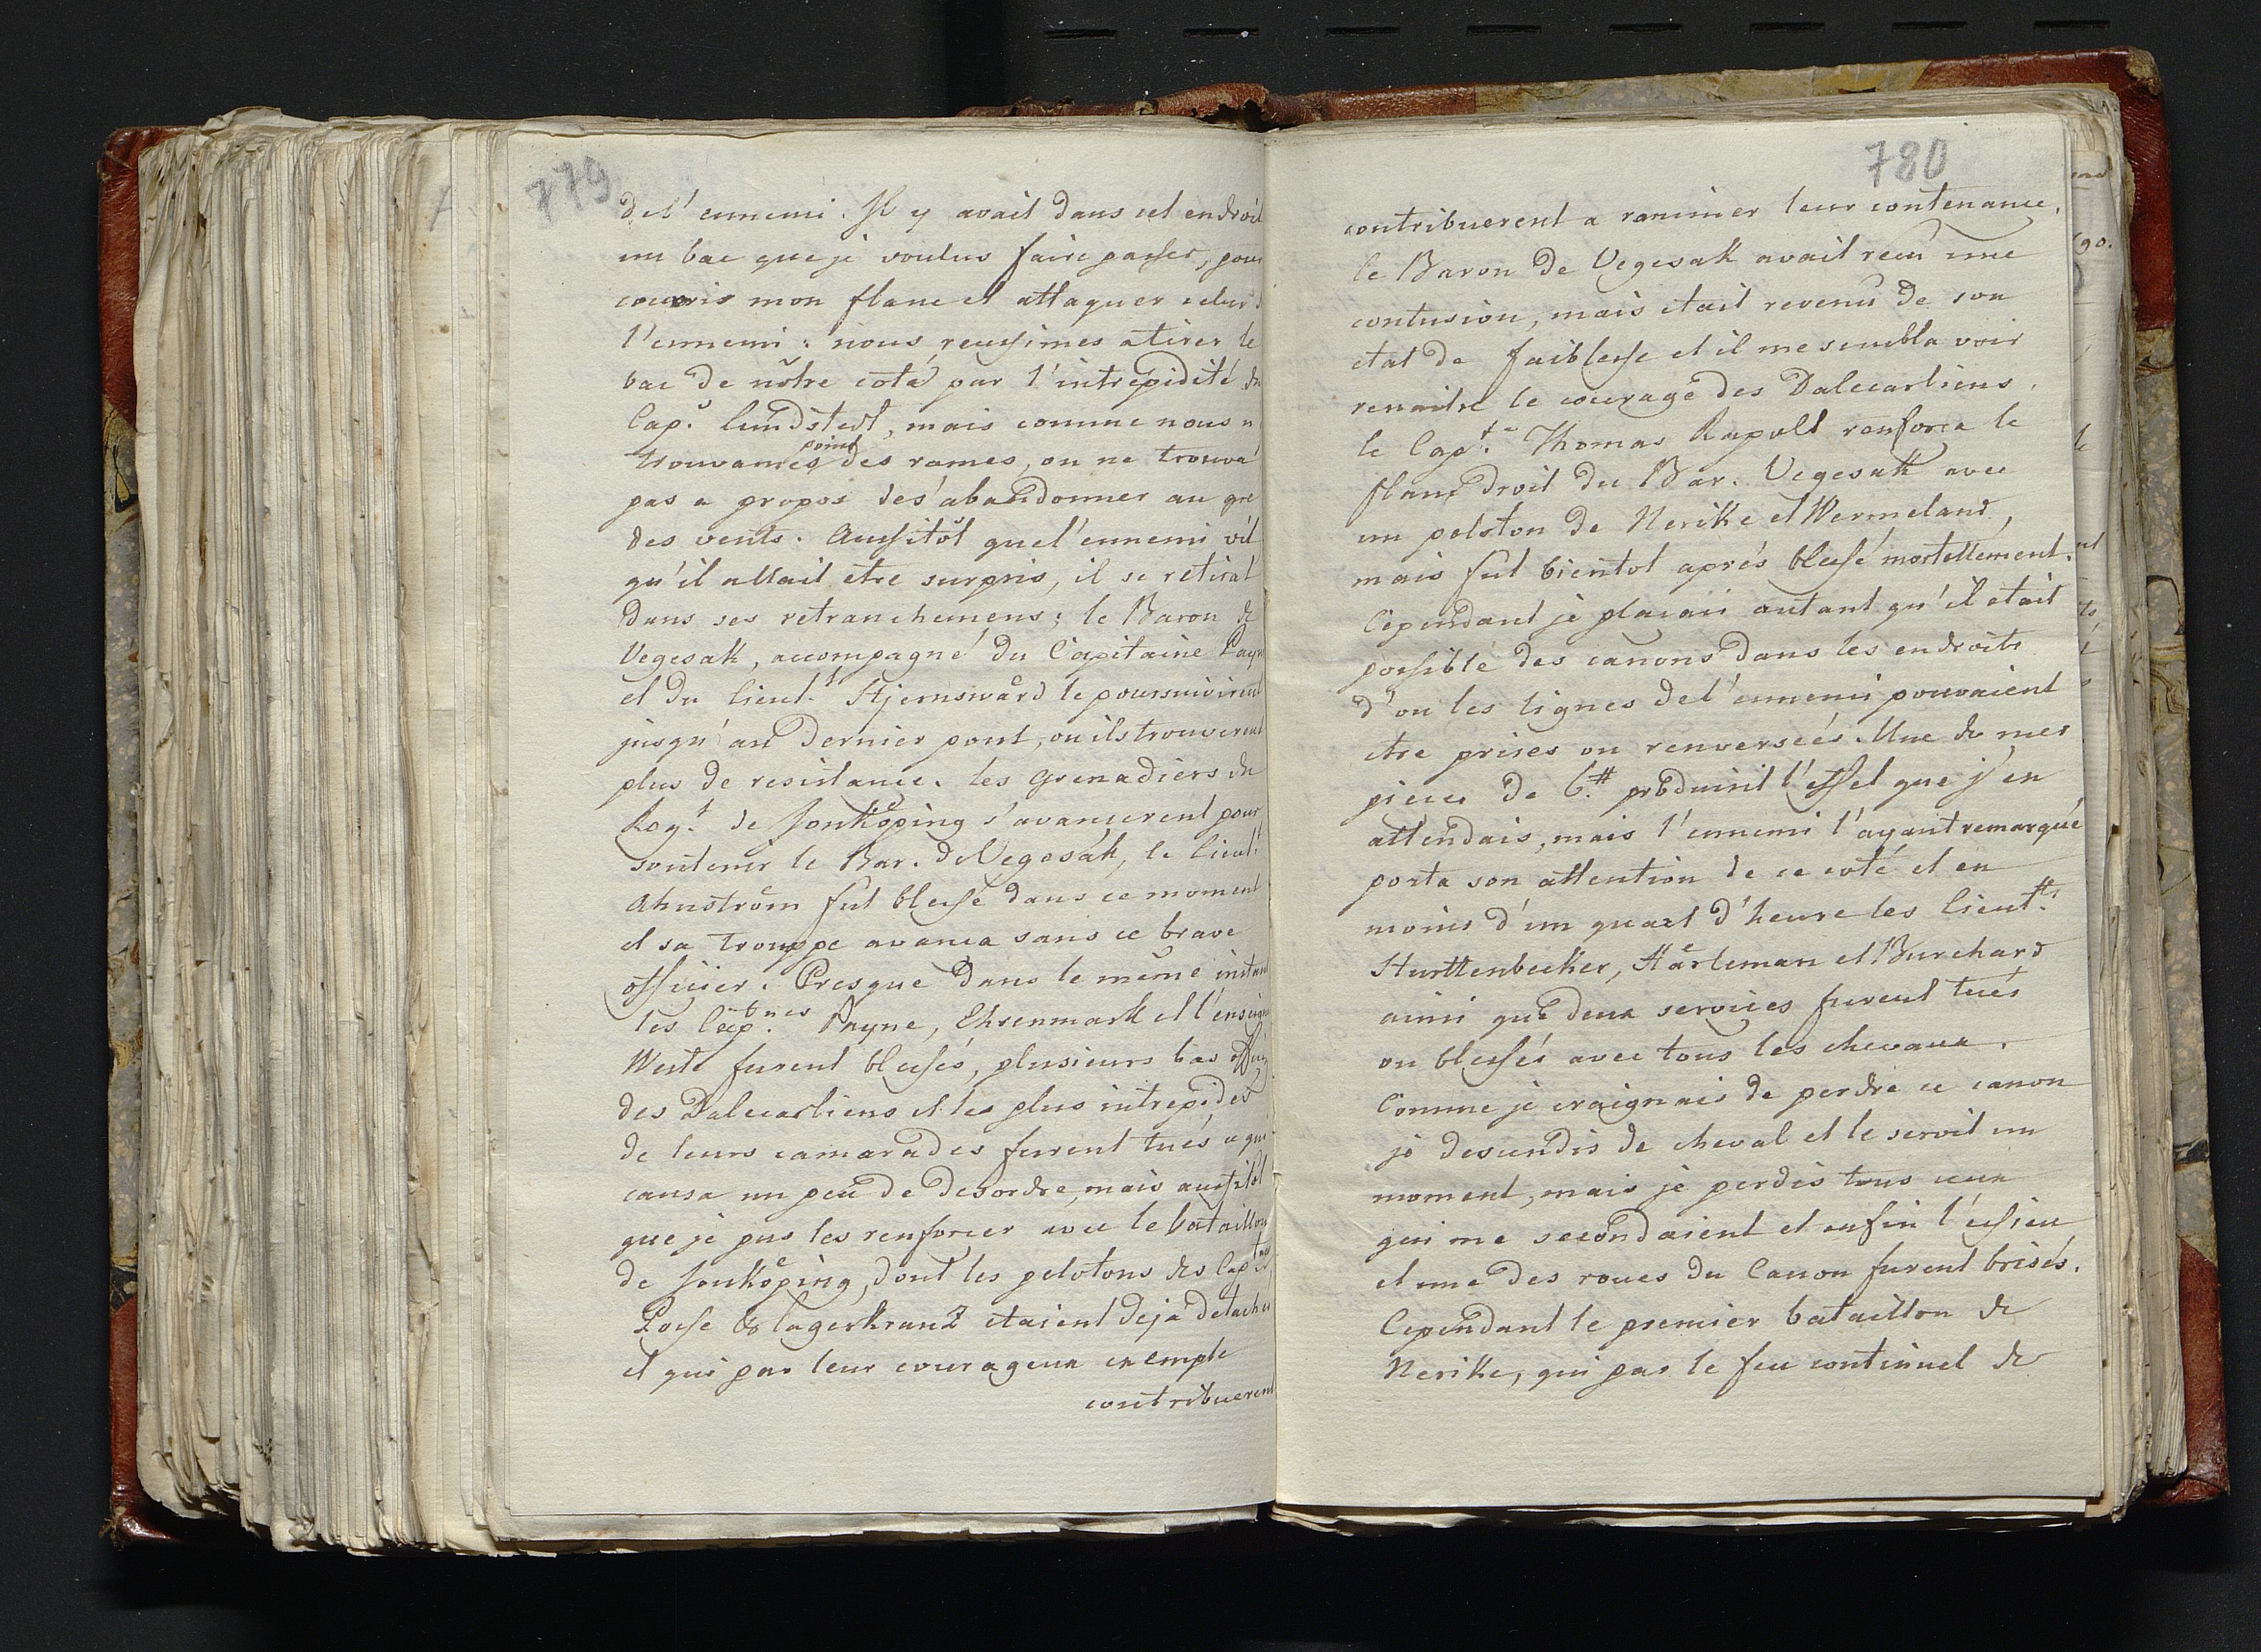 779
de l'ennemi. Il y avait dans cet endroit
un bac que je voulus faire passer, pour
couvrir mon flanc et attaquer celui
l'ennemi: nous reussimes a tirer le
bac de nôtre coté par l'intrepidité du
Cap. Lundstedt, mais comme nous n
point
trouvames des rames, on ne trouva
pas a propos de s'abandonner au gre
des vents. Aussitôt que l'ennemi vit
qu'il allait etre surpris, il se retirat
dans ses retranchemens; le Baron de
Vegesak, accompagné du Capitaine Payne
et du Lieut.t Stjernswärd le poursuivirent
jusqu'au dernier pont, ou ils trouverent
plus de resistance. les Grenadiers du
Reg.t de Jonköping s'avancerent pour
soutenir le Bar. de Vegesak, le Lieut.t
Ahnström fut blessé dans ce moment
et sa trouppe avanca sans ce brave
officier. Presque dans le même instant
les Capt.nes Payne, Ehrenmark et l'enseigne
furent blessés, plusieurs bas offic
des Dalecarliens et les plus intrepides
de leurs camarades furent tués ce qui
causa un peu de desordre, mais aussitôt
que je pus les renforcer avec le bataillon
de Jonköping, dont les pelotons des Capt.nes
Posse & Lagerkranz etaient deja detachés
et qui par leur courageux exemple
contribuerent
780
contribuerent a ranimer leur contenance,
le Baron de Vegesak avait recu une
contusion, mais etait revenu de son
etat de faiblesse et il me sembla voir
renaitre le courage des Dalecarliens.
le Capt. Thomas Rapolt renforca le
flanc droit du Bar. Vegesak avec
un peloton de Nerike et Wermeland,
mais fut bientot aprés blessé mortellement.
Cependant je placais autant qu'il etait
possible des canons dans les endroits
d'ou les lignes de l'ennemi pouvaient
etre prises ou renverseés. Une de mes
pieces de 6.# produisit l'effet que j'en
attendais, mais l'ennemi l'ayant remarqué
porta son attention de ce coté et en
moins d'un quart d'heure les Lieut.ts
Sturttenbecker, Härleman et Burchard
ainsi que deux services furent tués
ou blessés avec tous les chevaux.
Comme je craignais de perdre ce canon
je descendis de cheval et le servit un
moment, mais je perdis tous ceux
qui me secondaient et enfin l'essieu
et une des roues du Canon furent brisés.
Cependant le premier bataillon de
Nerike, qui par le feu continuel de